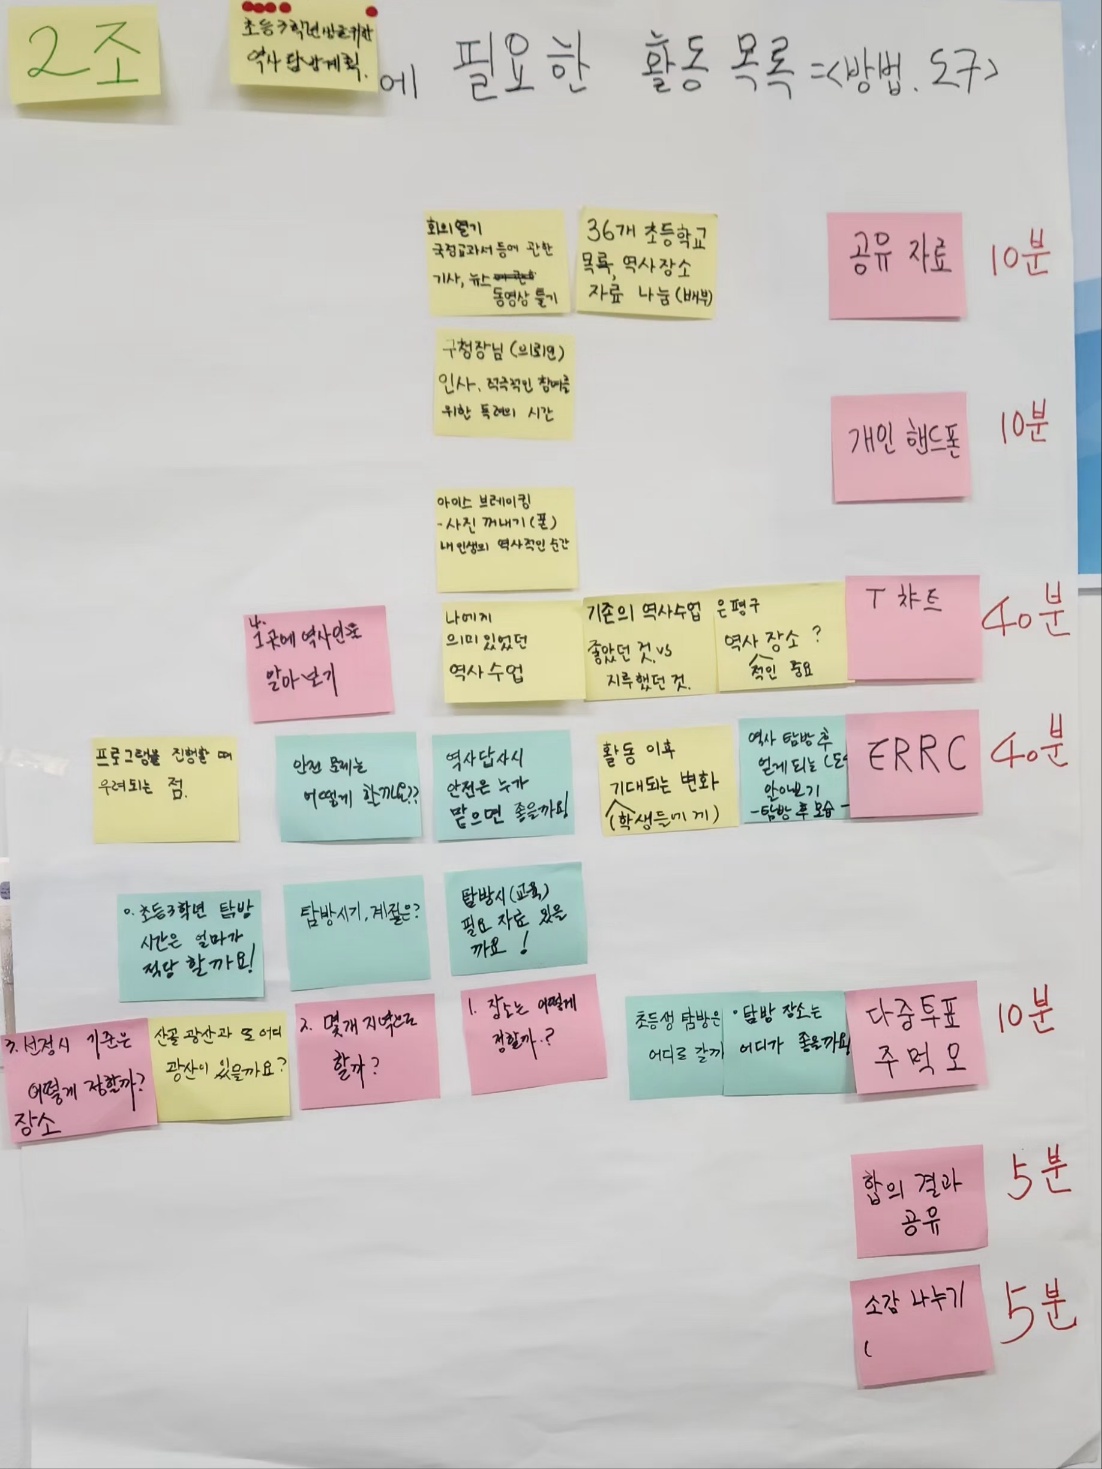 2조
초등3학년 방문위한
역사탐방계획.
에 필요한 활동 목록 =<방법. 도구>
회의 열기
국정교과서 등에 관한
기사, 뉴스
동영상 틀기
36개 초등학교
목록, 역사장소
자료 나눔(배부)
공유 자료
10분
구청장님 (의뢰인)
인사. 적극적인 참여를
위한 독려의 시간
개인 핸드폰
10분
아이스 브레이킹
- 사진 꺼내기(폰)
내 인생의 역사적인 순간
4.
1곳에 역사인물
알아보기
나에게
의미 있었던
역사수업
기존의 역사수업
좋았던 것. vs
지루했던 것.
은평구
역사 장소 ?
적인 중요
T 챠트
40분
프로그램을 진행할 때
우려되는 점.
안전 문제는
어떻게 할까요??
역사답사시
안전은 누가
맡으면 좋을까요!
활동 이후
기대되는 변화
(학생들에게)
역사 탐방 후
얻게 되는
알아보기
- 탐방 후 모습 -
ERRC
40분
○. 초등3학년 탐방
시간은 얼마가
적당 할까요!
탐방시기, 계절은?
탐방시 (교육)
필요 자료 있을
까요 !
3. 선정시 기준은
어떻게 정할까?
장소
산골 광산과 또 어디
광산이 있을까요?
2. 몇개 지역으로
할까?
1. 장소는 어떻게
정할까.?
초등생 탐방은
어디로 갈까
· 탐방 장소는
어디가 좋을까요
다중투표
주먹 오
10분
합의 결과
공유
5분
소감 나누기
(
5분